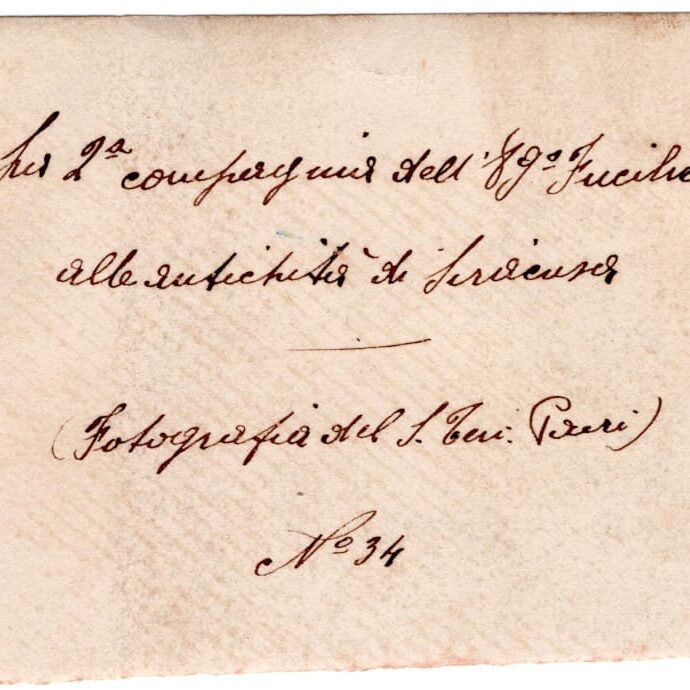 La 2ª compagnia dell' 79º Fucilie
alle antichità di Siracusa
(Fotografia del S. Ten. Pauri)
Nº 34